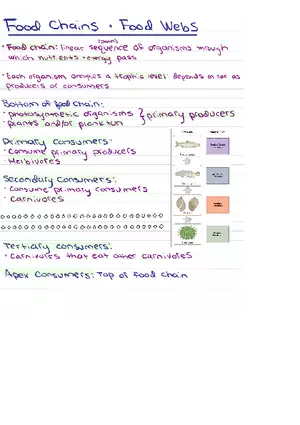 Food Chains + Food Webs
(pwr)
• Food chain: linear sequence of organisms through
which nutrients + energy pass
• Each organism occupies a trophic level: depends on role as
producers or consumers
Bottom of food chain:
• photosynthetic organisms } primary producers
• plants and/or plankton
Primary Consumers:
• Consume primary producers
• Herbivores
Secondary Consumers:
• Consume primary consumers
• Carnivores
Tertiary Consumers:
• Carnivores that eat other carnivores
Apex Consumers: Top of food chain